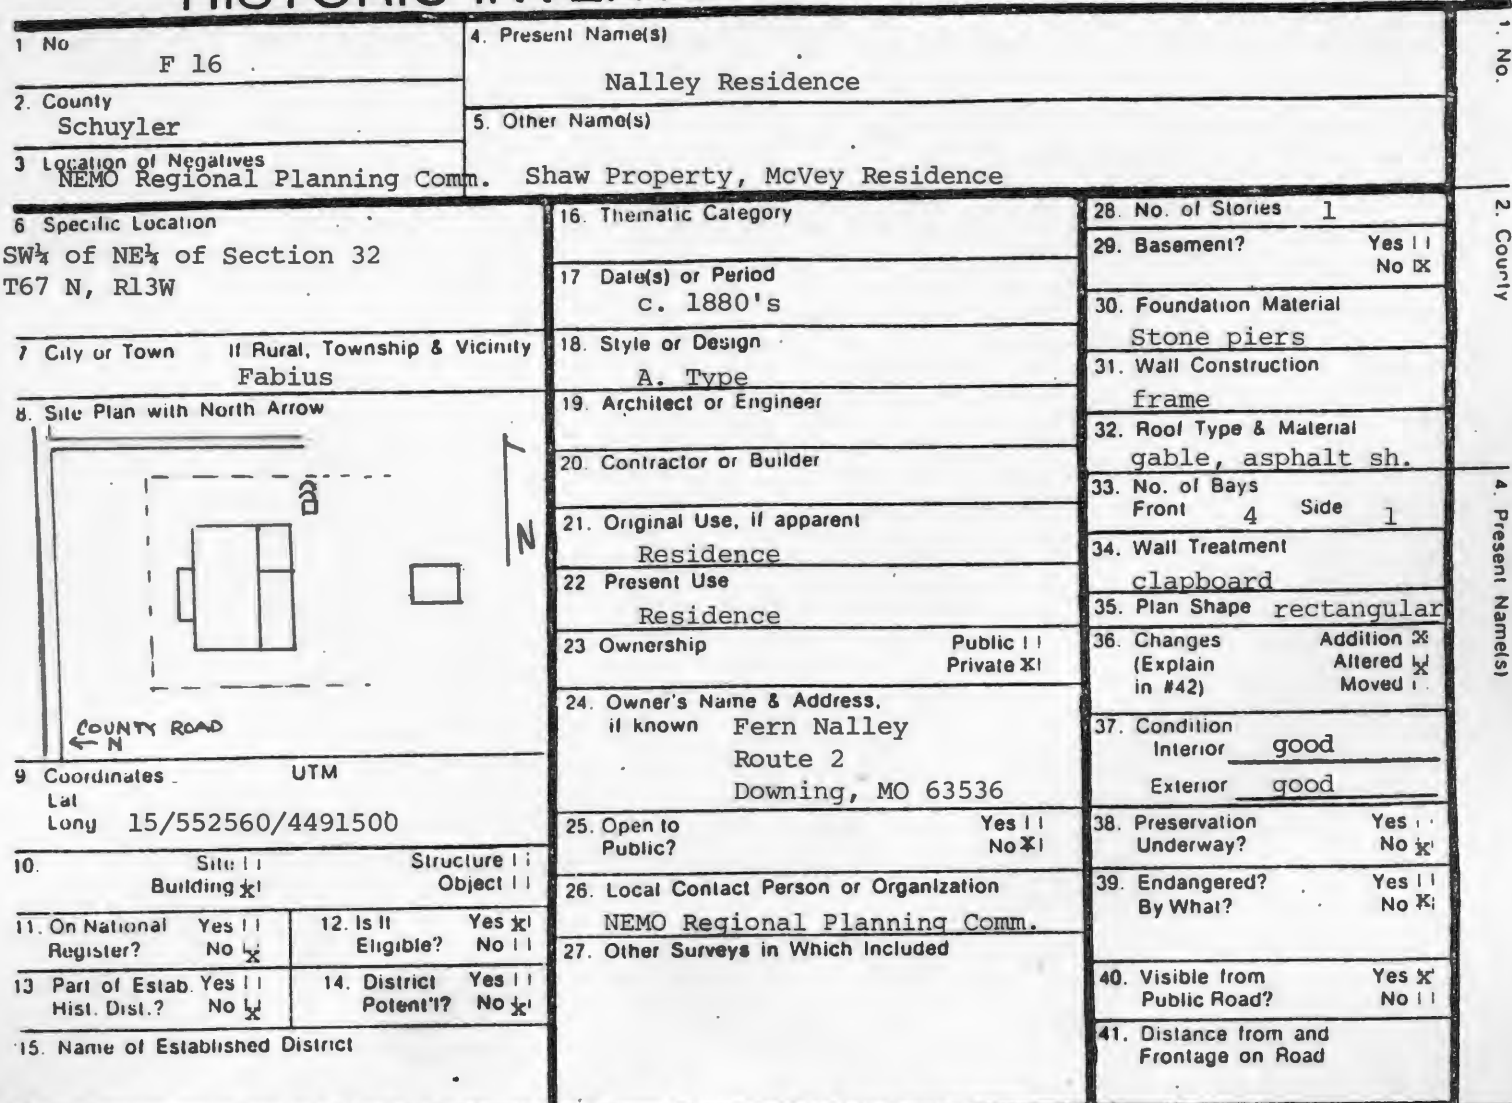 HISTORIC
1 No
F 16
2. County
Schuyler
3 Location of Negatives
NEMO Regional Planning Comm.
4. Present Name(s)
Nalley Residence
5. Other Name(s)
Shaw Property, McVey Residence
6 Specific Location
SW¼ of NE¼ of Section 32
T67 N, R13W
7 City or Town If Rural, Township & Vicinity
Fabius
8. Site Plan with North Arrow
N
COUNTY ROAD
N
9 Coordinates UTM
Lat
Long 15/552560/4491500
10. Site Structure
Building x Object
11. On National Register? Yes No x
12. Is It Eligible? Yes x No
13 Part of Estab. Hist. Dist.? Yes No x
14. District Potent'l? Yes No x
15. Name of Established District
16. Thematic Category
17 Date(s) or Period
c. 1880's
18. Style or Design
A. Type
19. Architect or Engineer
20. Contractor or Builder
21. Original Use, if apparent
Residence
22 Present Use
Residence
23 Ownership Public
Private X
24. Owner's Name & Address,
if known Fern Nalley
Route 2
Downing, MO 63536
25. Open to Yes
Public? No X
26. Local Contact Person or Organization
NEMO Regional Planning Comm.
27. Other Surveys in Which Included
28. No. of Stories 1
29. Basement? Yes
No X
30. Foundation Material
Stone piers
31. Wall Construction
frame
32. Roof Type & Material
gable, asphalt sh.
33. No. of Bays
Front 4 Side 1
34. Wall Treatment
clapboard
35. Plan Shape rectangular
36. Changes Addition X
(Explain Altered X
in #42) Moved
37. Condition
Interior good
Exterior good
38. Preservation Yes
Underway? No x
39. Endangered? Yes
By What? No X
40. Visible from Yes X
Public Road? No
41. Distance from and
Frontage on Road
1. No.
2. County
4. Present Name(s)